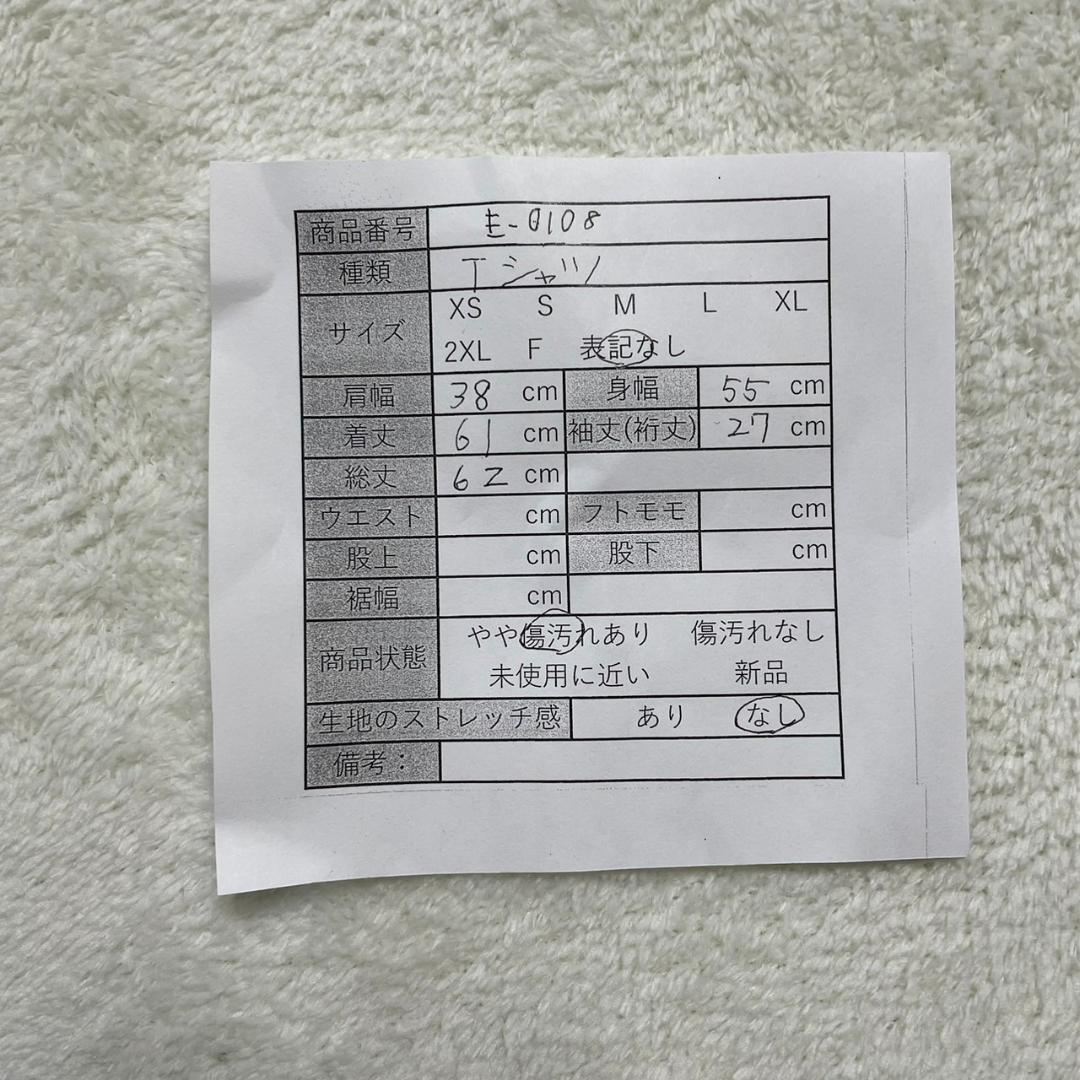 商品番号 E-0108
種類 Tシャツ
サイズ XS S M L XL
2XL F 表記なし
肩幅 38 cm 身幅 55 cm
着丈 61 cm 袖丈(裄丈) 27 cm
総丈 62 cm
ウエスト cm フトモモ cm
股上 cm 股下 cm
裾幅 cm
商品状態 やや傷汚れあり 傷汚れなし
未使用に近い 新品
生地のストレッチ感 あり なし
備考：